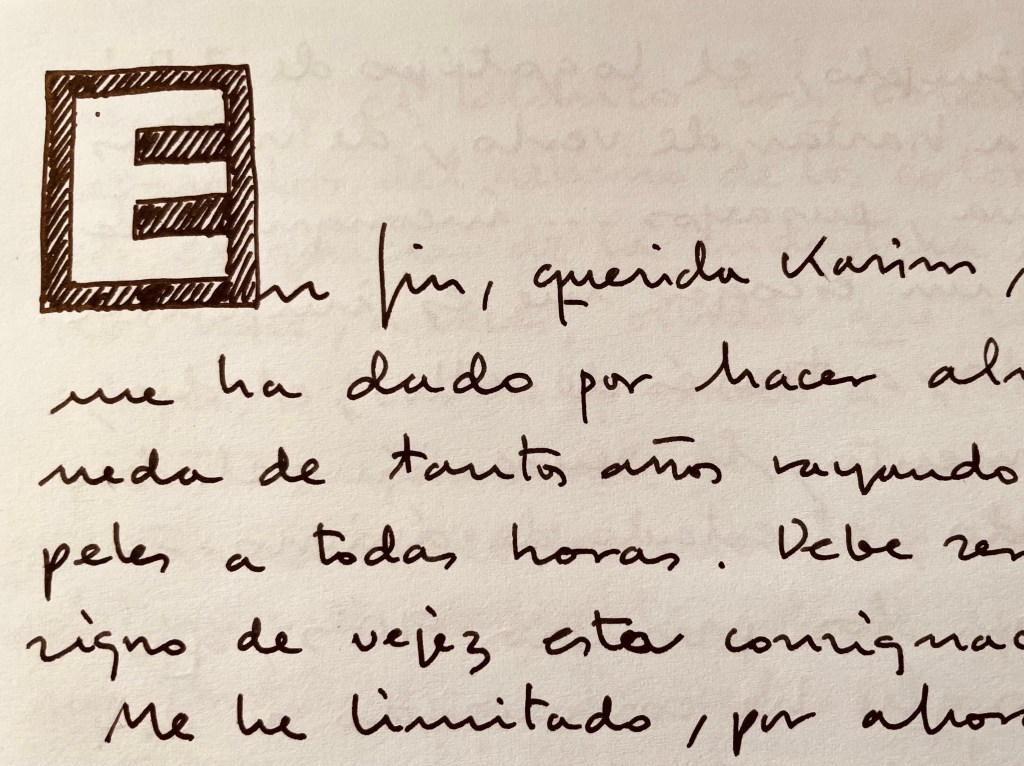 En fin, querida Karim,
me ha dado por hacer alm
neda de tantos años rayando
peles a todas horas. Debe ser
signo de vejez esta consignac
Me he limitado, por ahora